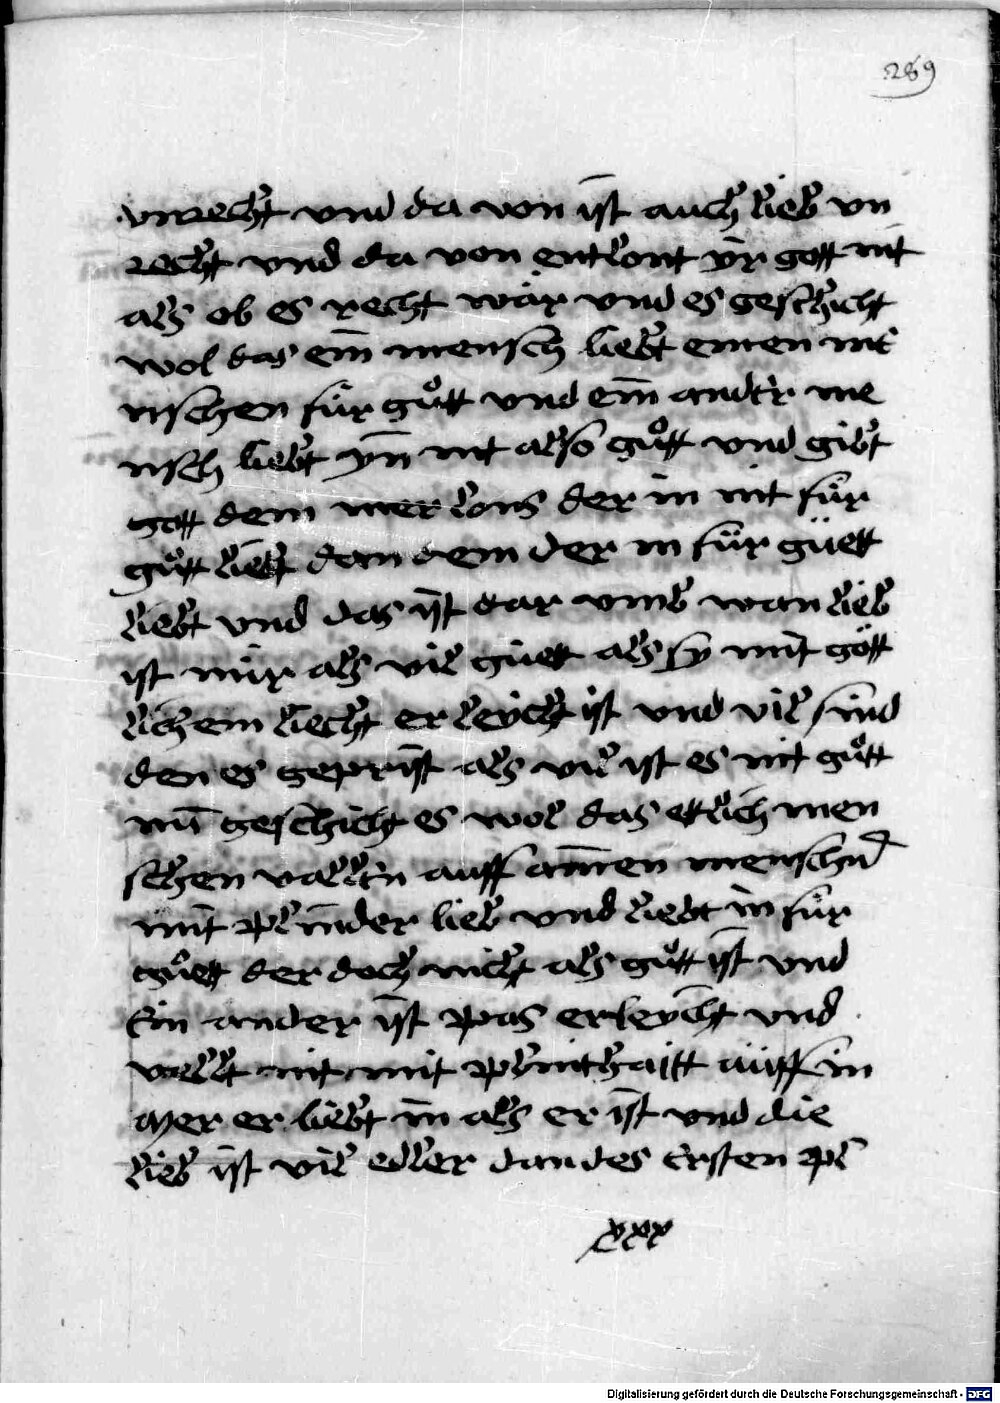 289
vnrecht vnd da von ist auch lieb vn
recht vnd da von entlont yr gott nit
als ob es recht wär vnd es geschicht
wol das ein mensch liebt einen me
nschen für gůtt vnd ein andr̄ me
nsch liebt yn nit also gůtt vnd gibt
gott dem mer lons der in nit für
gůtt liebt dan dem der in für güett
liebt vnd das ist dar vmb wan lieb
ist nür als vil güett als sy mit gött
lichem liecht erleücht ist vnd vil sind
den es geprist als vil ist es nit gůtt
nū geschicht es wol das ettlich men
schen valln̄ auff ainen menschn̄
mit plinder lieb vnd liebt in für
gůett der doch nicht als gůtt ist vnd
Ein ander ist pas erleycht vnd
vellt nit mit plinthaitt auff in
Mer er liebt in als er ist vnd die
lieb ist vil edler dan des Ersten pl
xxx
Digitalisierung gefördert durch die Deutsche Forschungsgemeinschaft - DFG